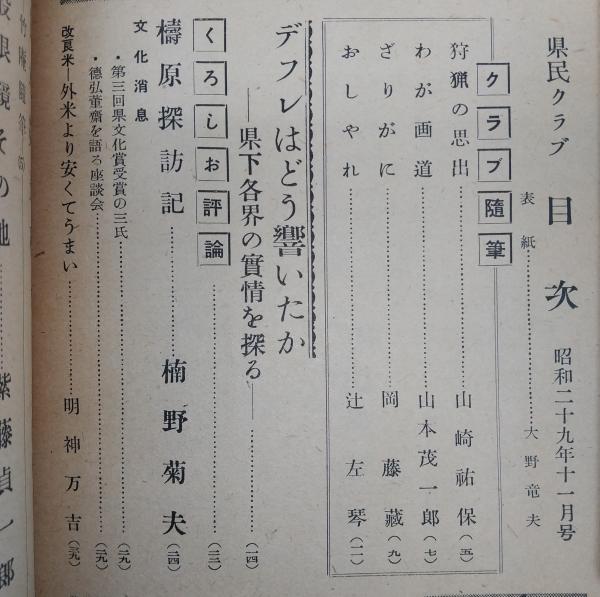 県民クラブ 目次 昭和二十九年十一月号
表紙……大野竜夫
クラブ隨筆
狩猟の思出……山崎祐保(五)
わが画道……山本茂一郎(七)
ざりがに……岡藤藏(九)
おしやれ……辻左琴(一一)
デフレはどう響いたか
―県下各界の實情を探る―……(一四)
くろしお評論……(二三)
檮原探訪記……楠野菊夫(二四)
文化消息
・第三回県文化賞受賞の三氏……(二九)
・德弘董齋を語る座談会……(二九)
改良米―外米より安くてうまい……明神万吉(三九)
その他……紫藤貞一郎